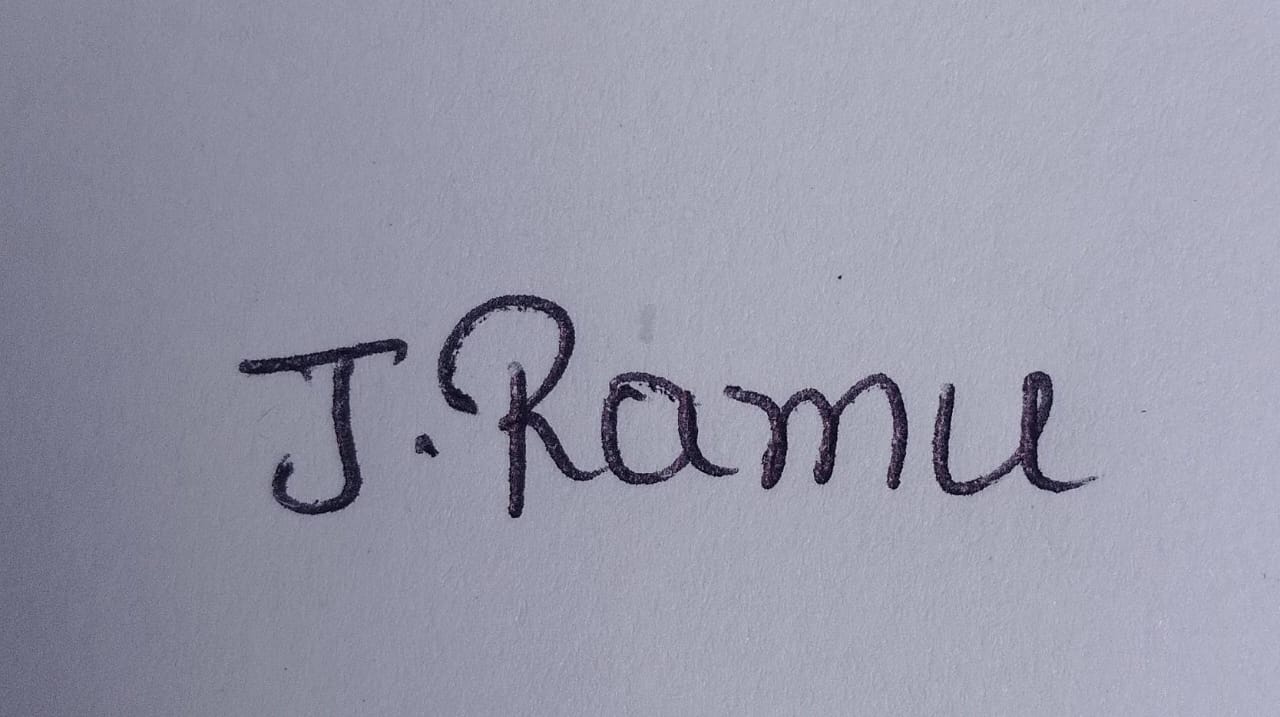 J. Ramu